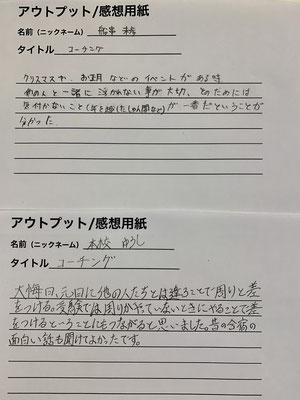 アウトプット/感想用紙
名前（ニックネーム）
タイトル コーチング
クリスマスや、お正月などのイベントがある時
他の人と一緒に浮かれない事が大切、そのためには
気付かないこと(年を越したしゅん間など)が一番だということが
分かった
アウトプット/感想用紙
名前（ニックネーム） 本校 ゆうし
タイトル コーチング
大晦日、元日に他の人たちとは違うことで周りと差
をつける。受験では周りがやっていないときにやることで差
をつけるということにもつながると思いました。昔の合宿の
面白い話も聞けてよかったです。